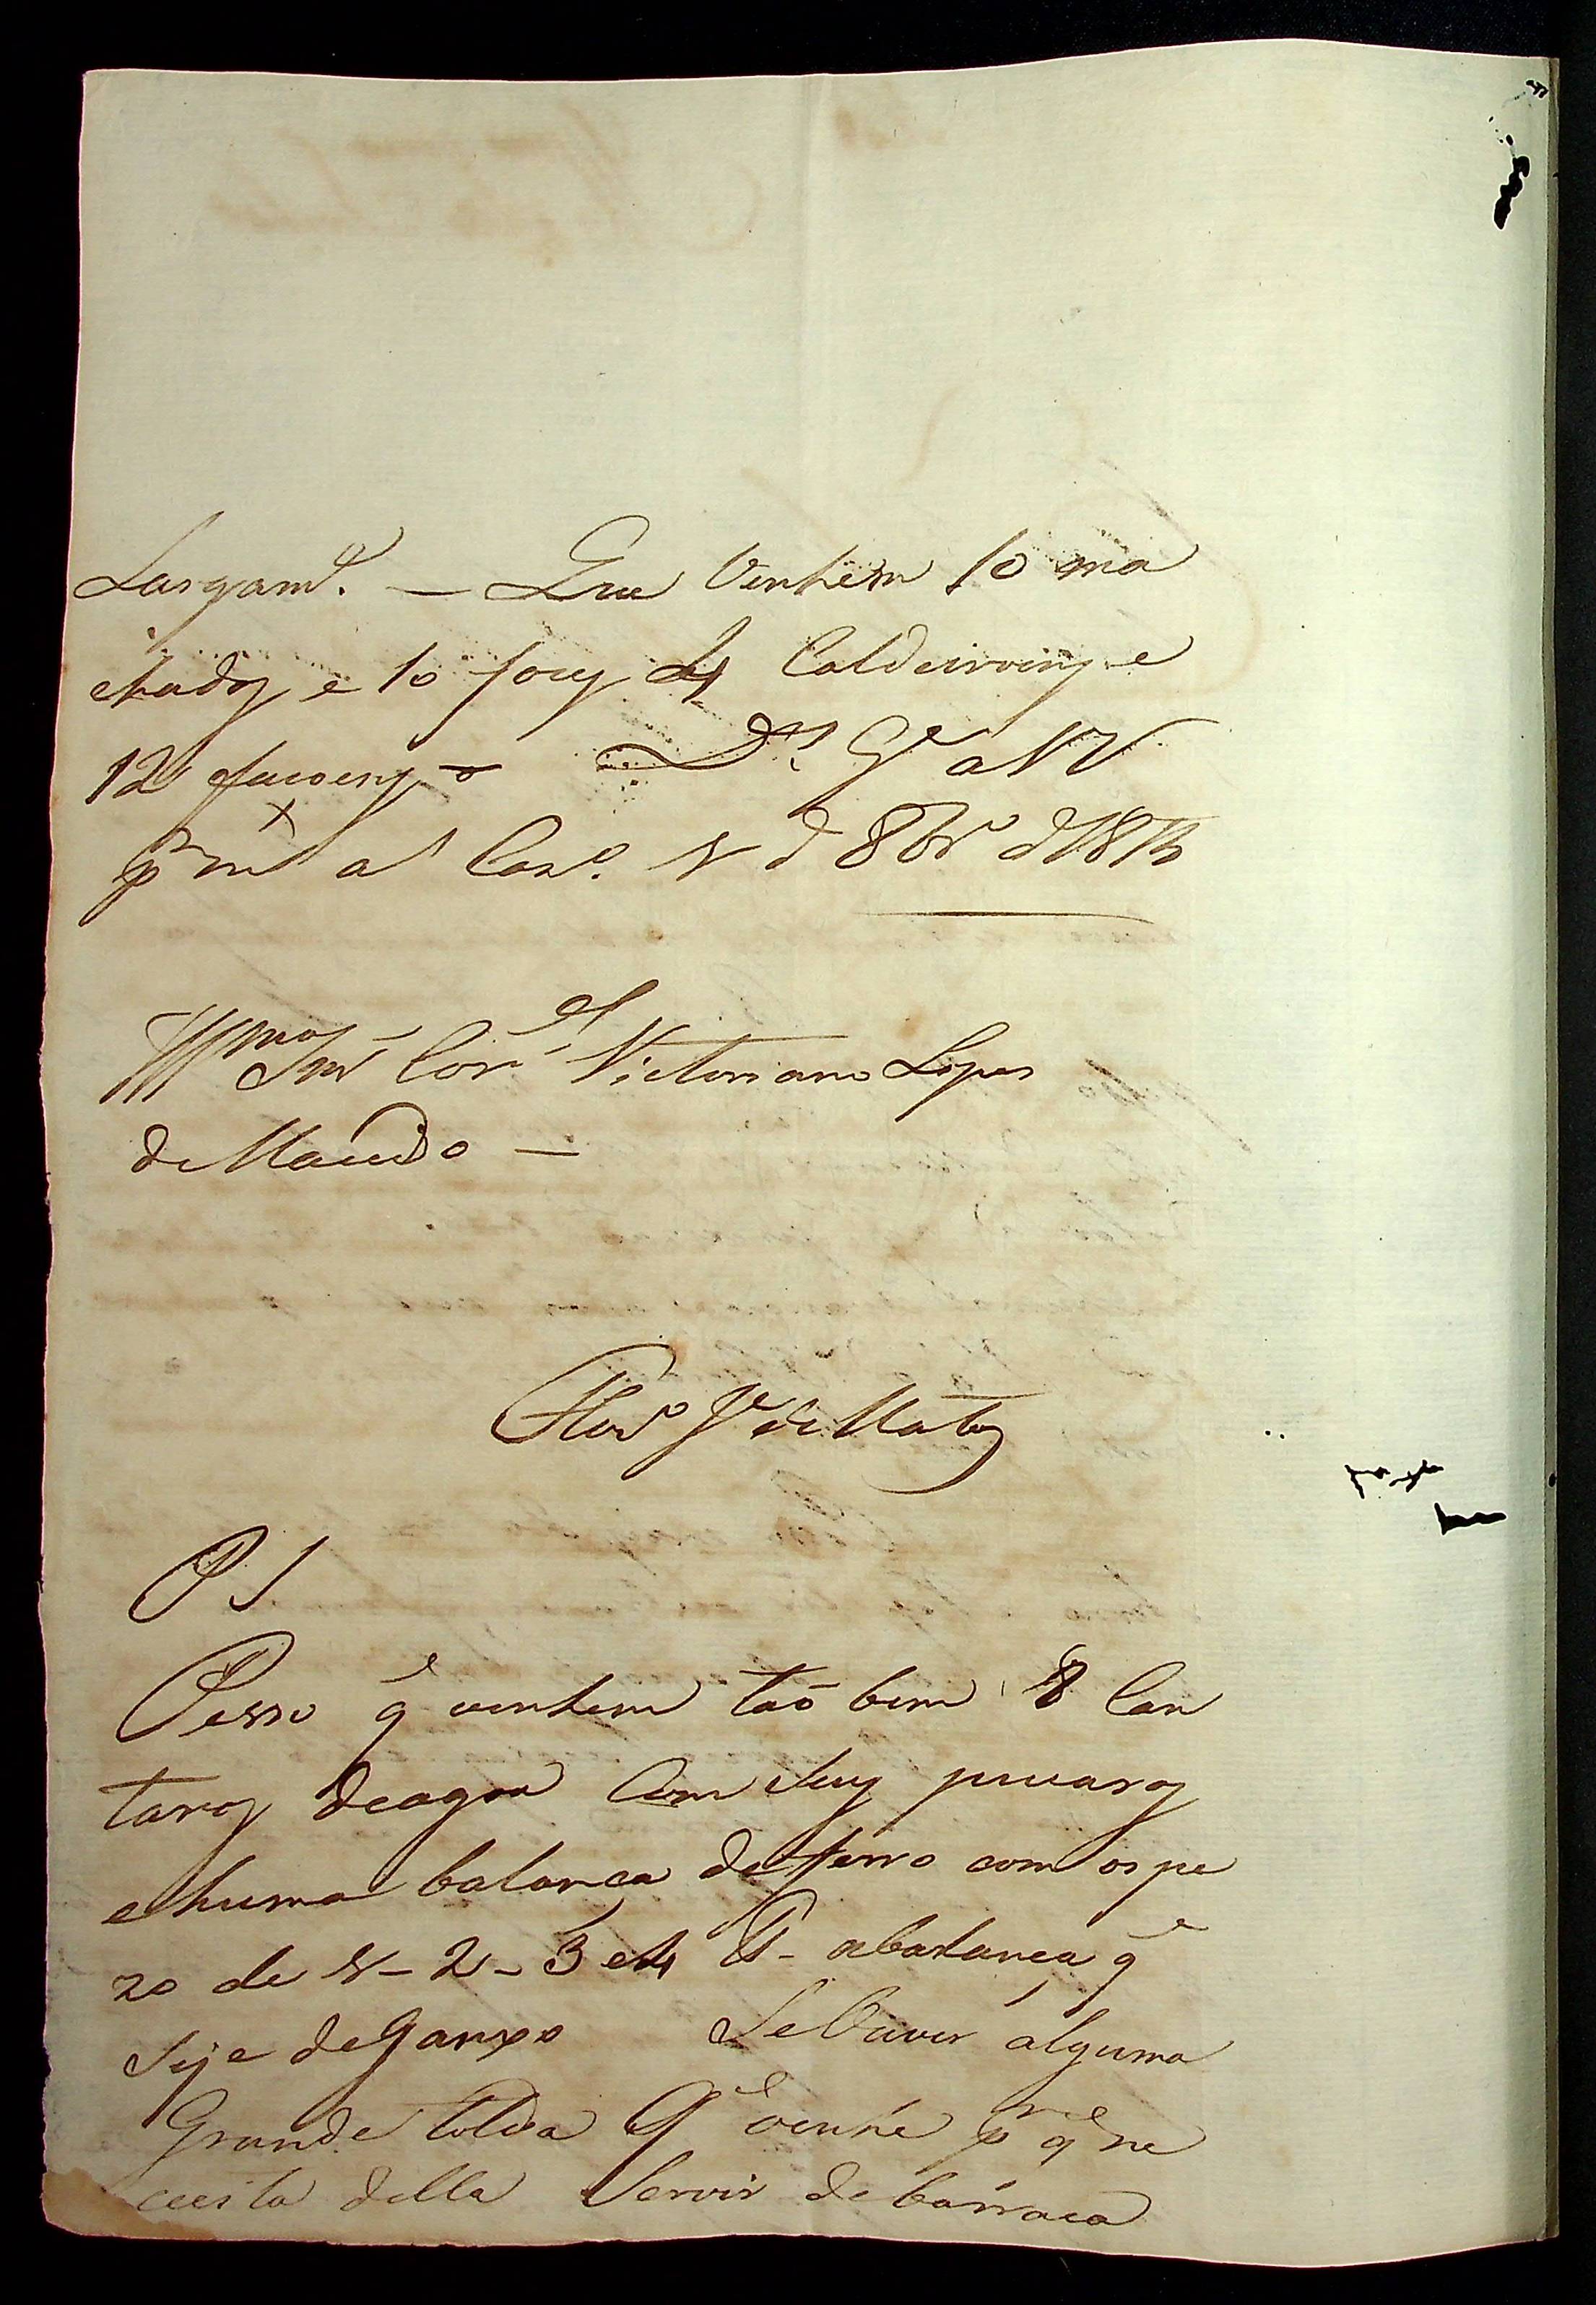 Largam.te — Que Venhem 10 ma
chados e 10 foices 4 Caldeiroens e
12 facoens D.s G.e a V
p m a Cas.o 1 d 8br.o d
Ill.mo Snr Cor.el Victoriano Lopes
de Macedo —
J.e de Mattos
P S
Pesso q.e venhem taõ bem 8 Can
taros de agoa Com seus pucaros
e huma balança de ferro com os pe
zo de 1 – 2 – 3 e 4 a balança q.e
Seje de Ganxo Se Ouver alguma
Grande tolda q.e venhe p.r q.e ne
cesita della Servir de barraca